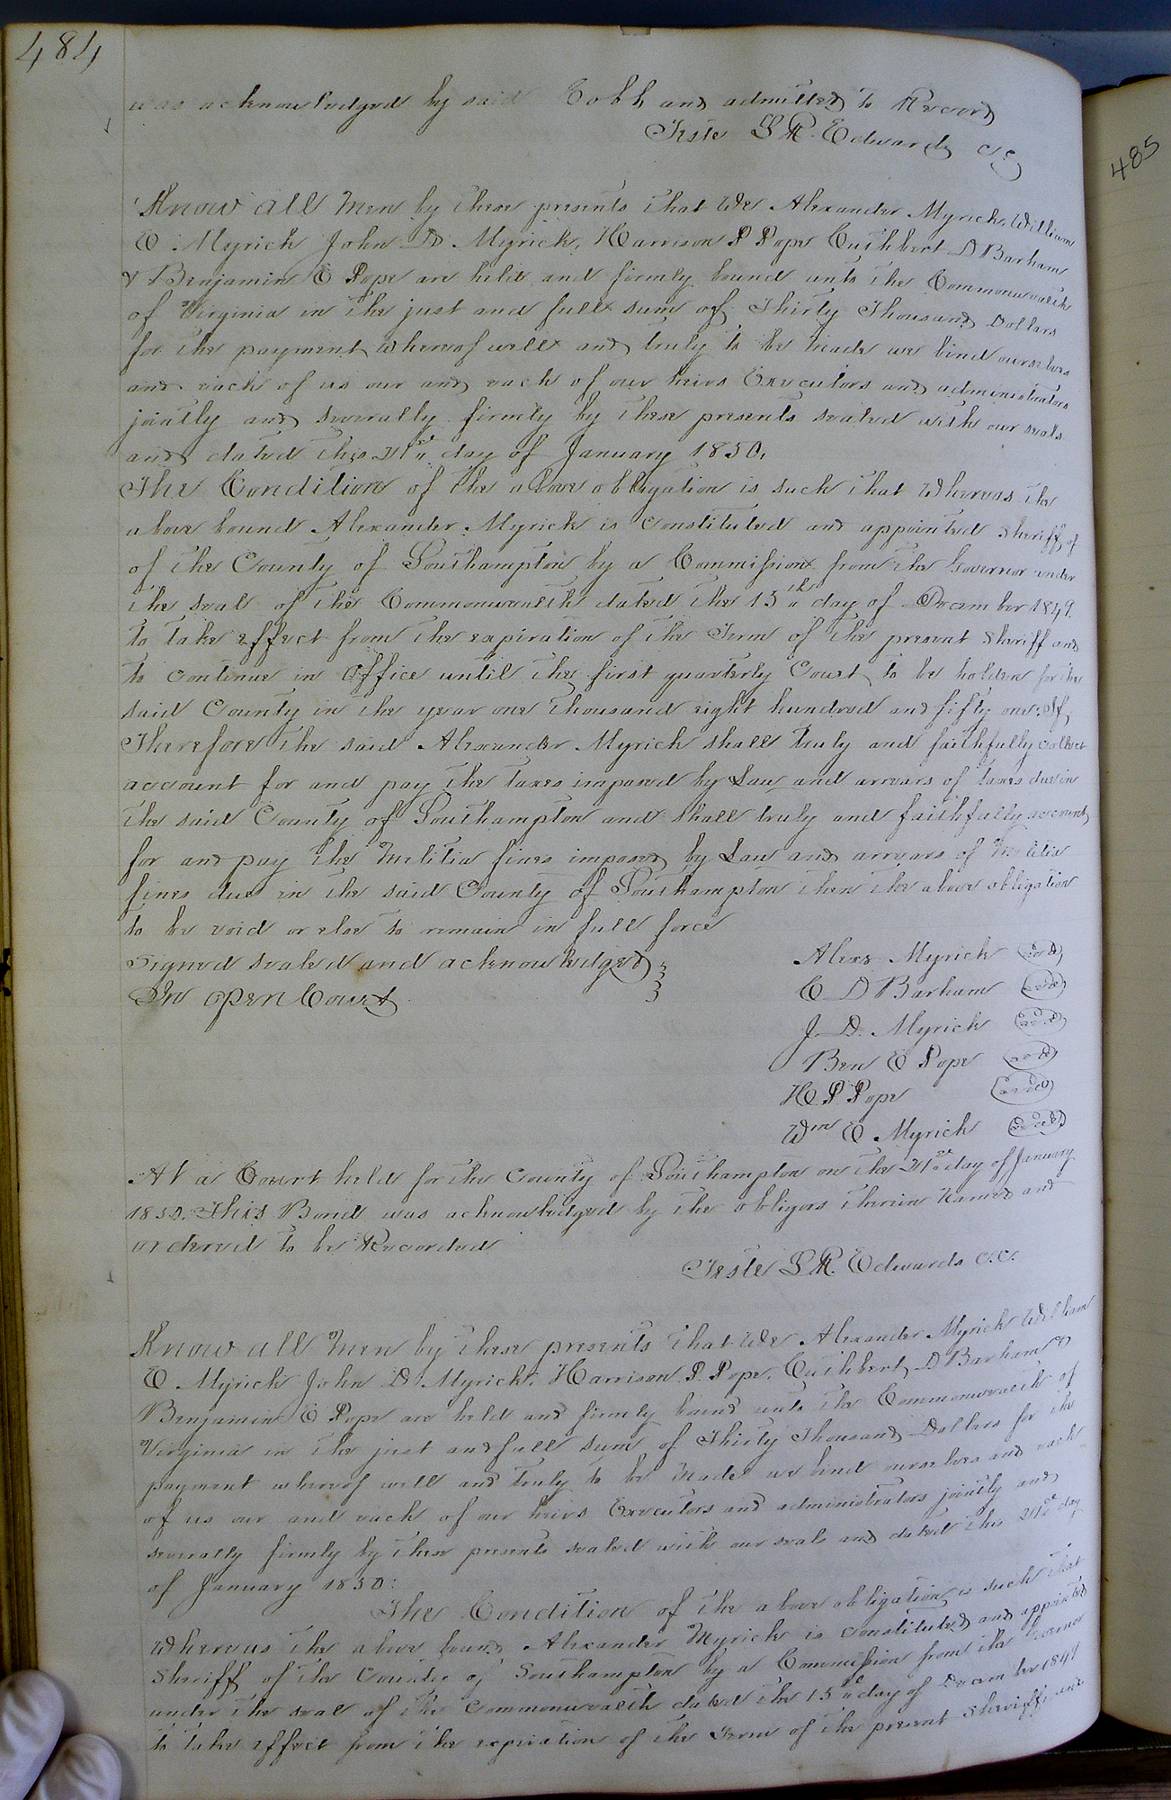 484
was acknowledged by said Cobb and admitted to Record
Teste L R. Edwards CC
485
Know all Men by these presents that We Alexander Myrick, William
E Myrick John D Myrick, Harrison P Pope Cuthbert D Barham
& Benjamin E Pope are held and firmly bound unto the Commonwealth
of Virginia in the just and full sum of Thirty Thousand Dollars
for the payment whereof well and truly to be made we bind ourselves
and each of us our and each of our heirs Executors and administrators
jointly and severally firmly by these presents sealed with our seals
and dated this 21st day of January 1850.
The Condition of the above obligation is such that Whereas the
above bound Alexander Myrick is Constituted and appointed Sheriff of
of the County of Southampton by a Commission from the Governor under
the seal of the Commonwealth dated the 15th day of December 1849.
to take effect from the expiration of the Term of the present Sheriff and
to continue in Office until the first quarterly Court to be holden for the
said County in the year one thousand eight hundred and fifty one: If,
Therefore the said Alexander Myrick shall truly and faithfully collect
account for and pay the taxes imposed by Law and arrears of taxes due in
the said County of Southampton and shall truly and faithfully account
for and pay the Militia fines imposed by Law and arrears of Militia
fines due in the said County of Southampton then the above obligation
to be void or else to remain in full force
Signed sealed and acknowledged
In open Court
Alexr Myrick seal
C D Barham seal
J. D. Myrick seal
Ben E Pope seal
H P Pope seal
Wm E Myrick seal
At a Court held for the County of Southampton on the 21st day of January
1850. This Bond was acknowledged by the obligors therein Named and
ordered to be Recorded
Teste L R. Edwards C.C.
Know all Men by these presents that We Alexander Myrick William
E Myrick John D Myrick, Harrison P. Pope, Cuthbert D Barham &
Benjamin E Pope are held and firmly bound unto the Commonwealth of
Virginia in the just and full sum of Thirty Thousand Dollars for the
payment whereof well and truly to be Made we bind ourselves and each
of us our and each of our heirs Executors and administrators jointly and
severally firmly by these presents sealed with our seals and dated this 21st day
of January 1850:
The Condition of the above obligation is such that
Whereas the above bound Alexander Myrick is Constituted and appointed
Sheriff of the County of Southampton by a Commission from the Governor
under the seal of the Commonwealth dated the 15th day of December 1849
to take effect from the expiration of the Term of the present Sheriff and